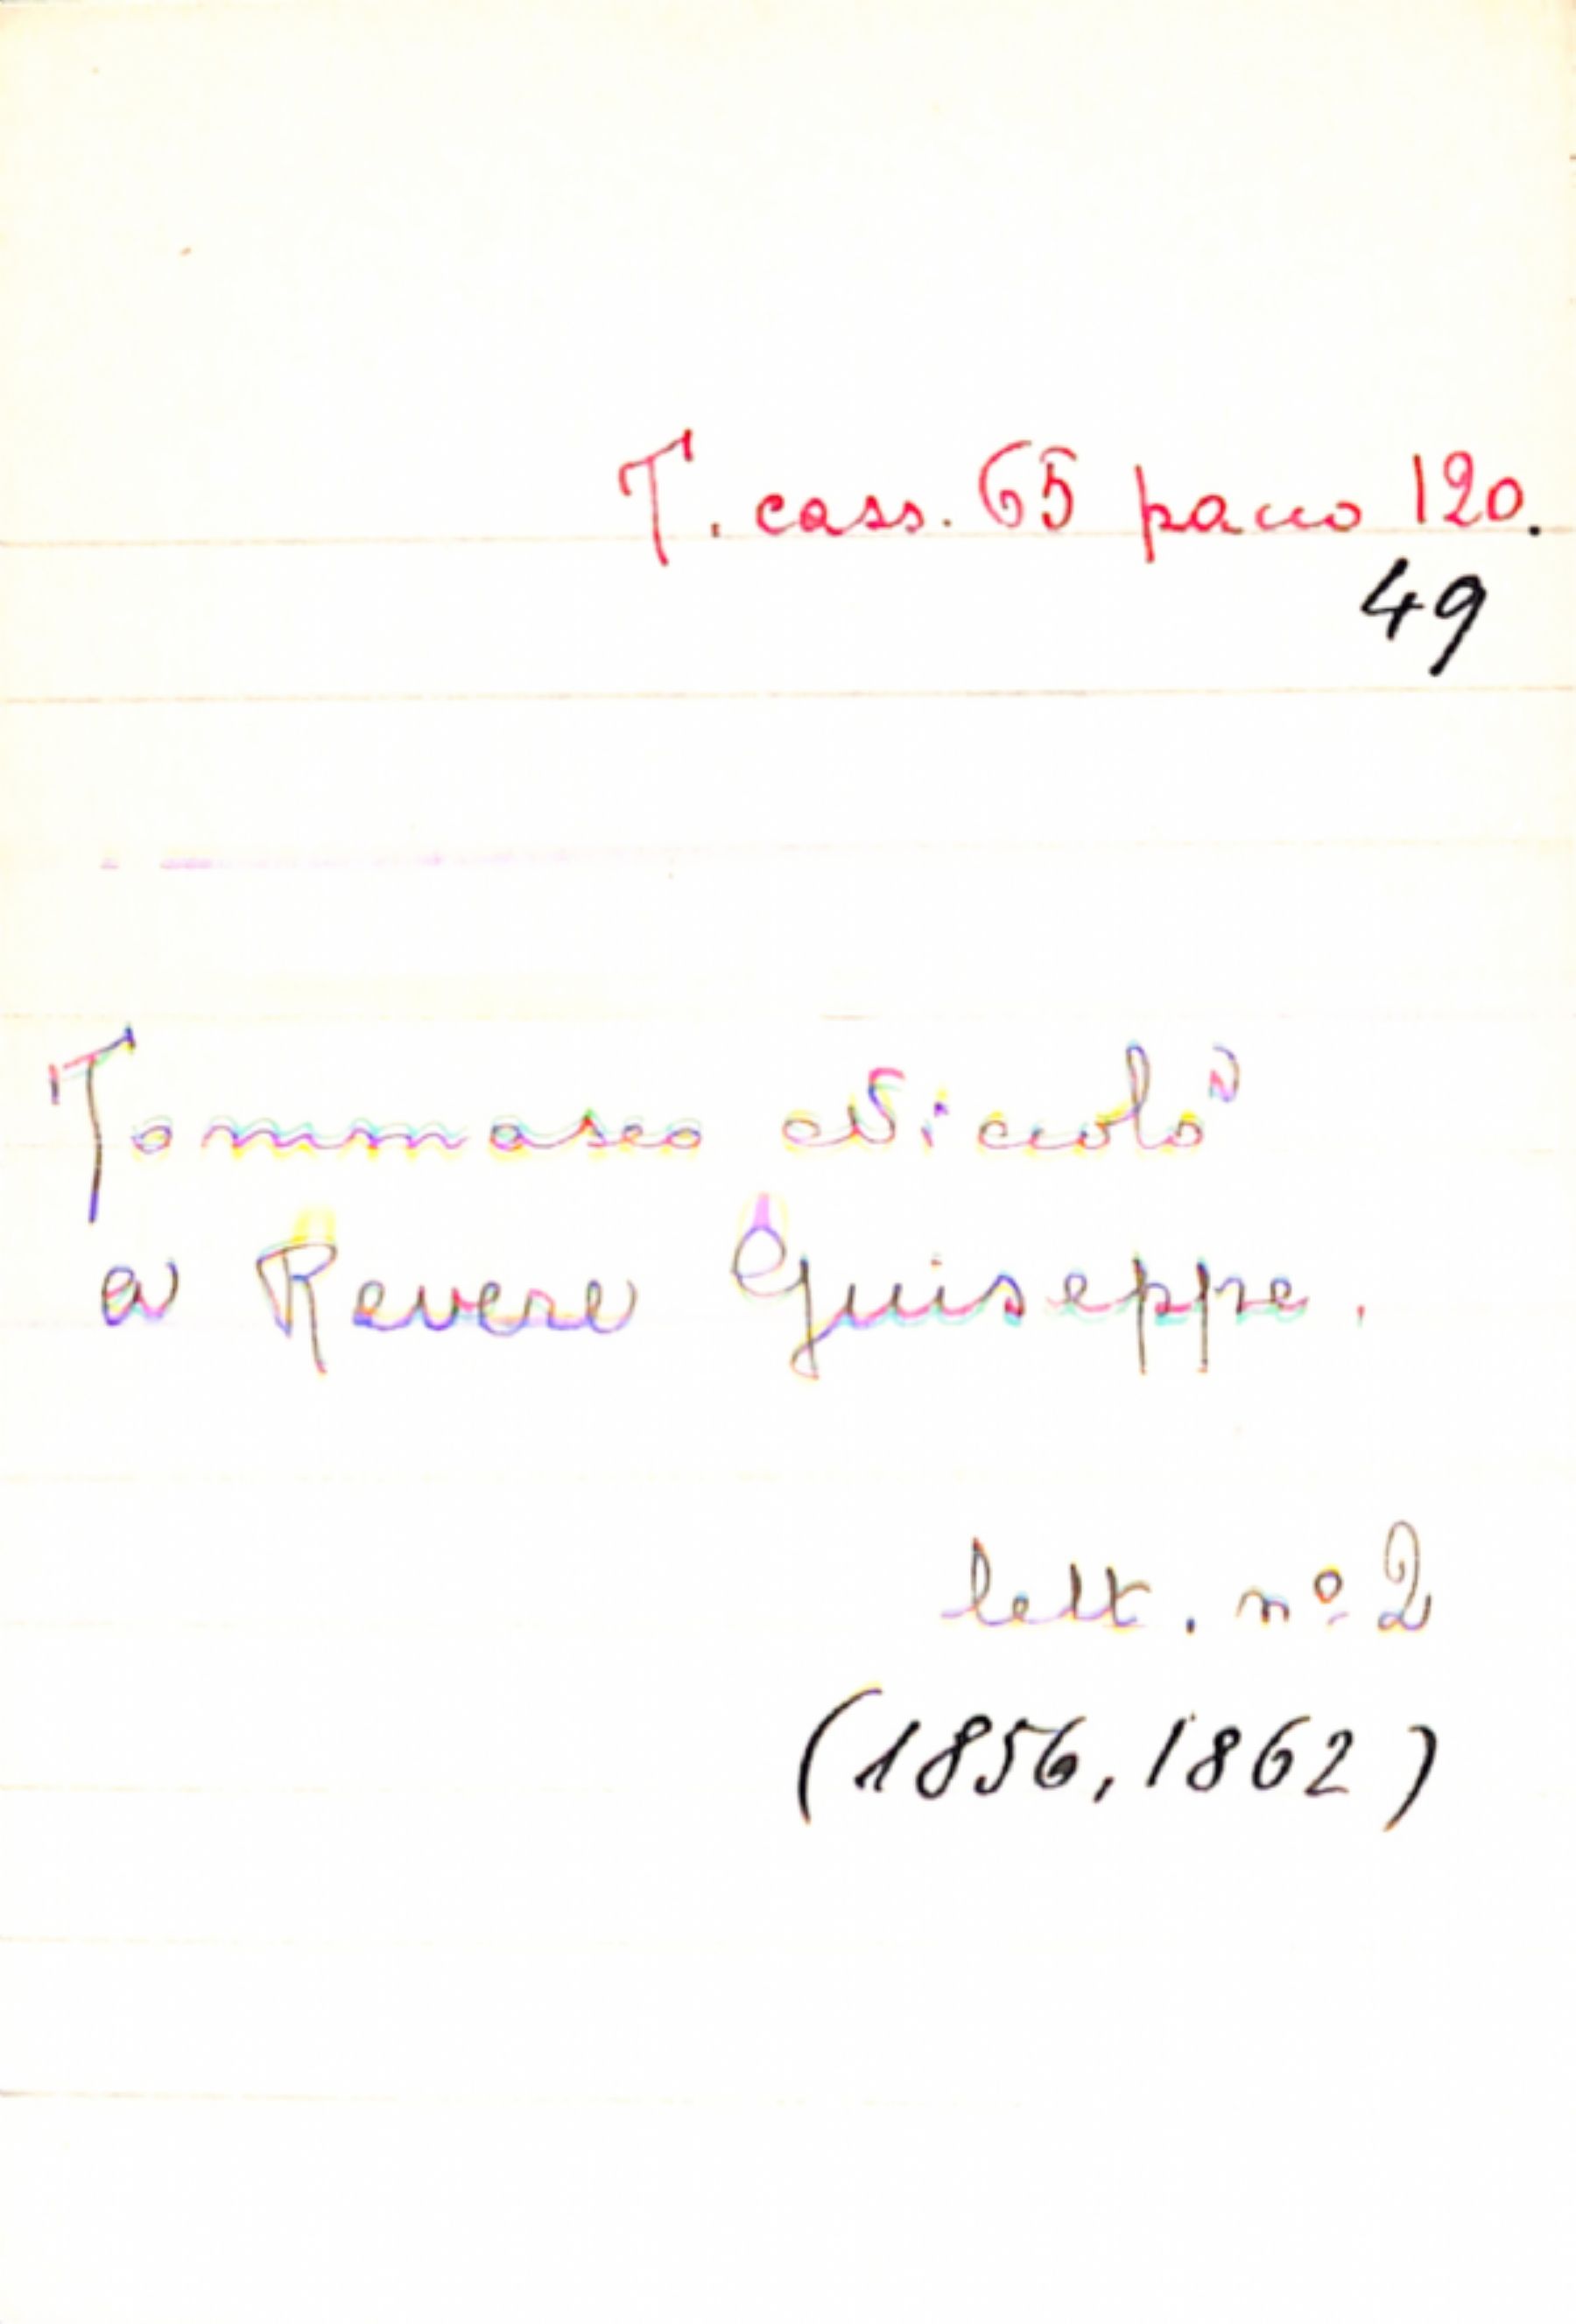 T. cass. 65 pacco 120.
49
Tommaseo Niccolò
a Revere Giuseppe.
lett. nº 2
(1856, 1862)